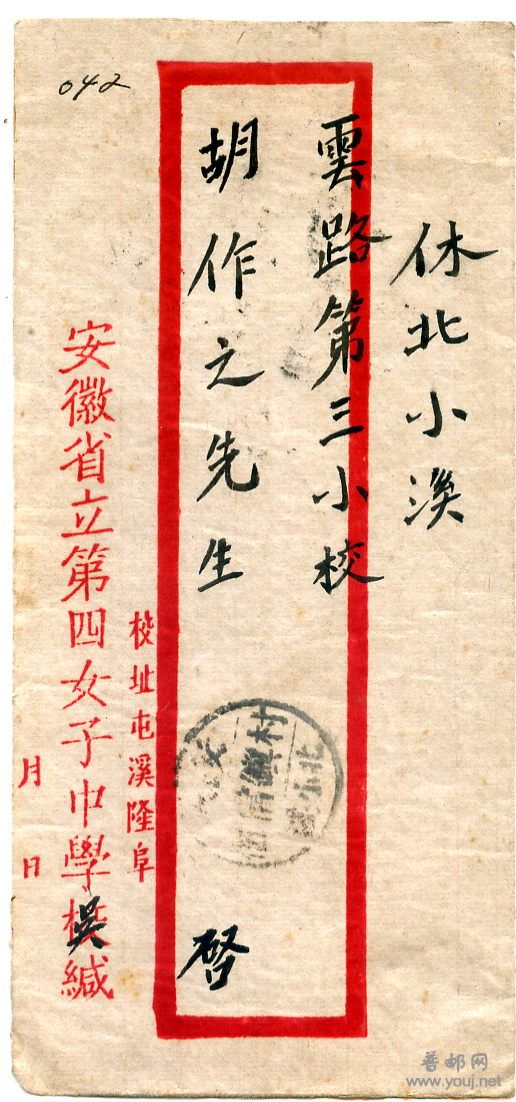 042
休北小溪
雲路第三小校
胡作之先生
啓
校址屯溪隆阜
安徽省立第四女子中學校吳緘
月 日
普邮网
www.youj.net